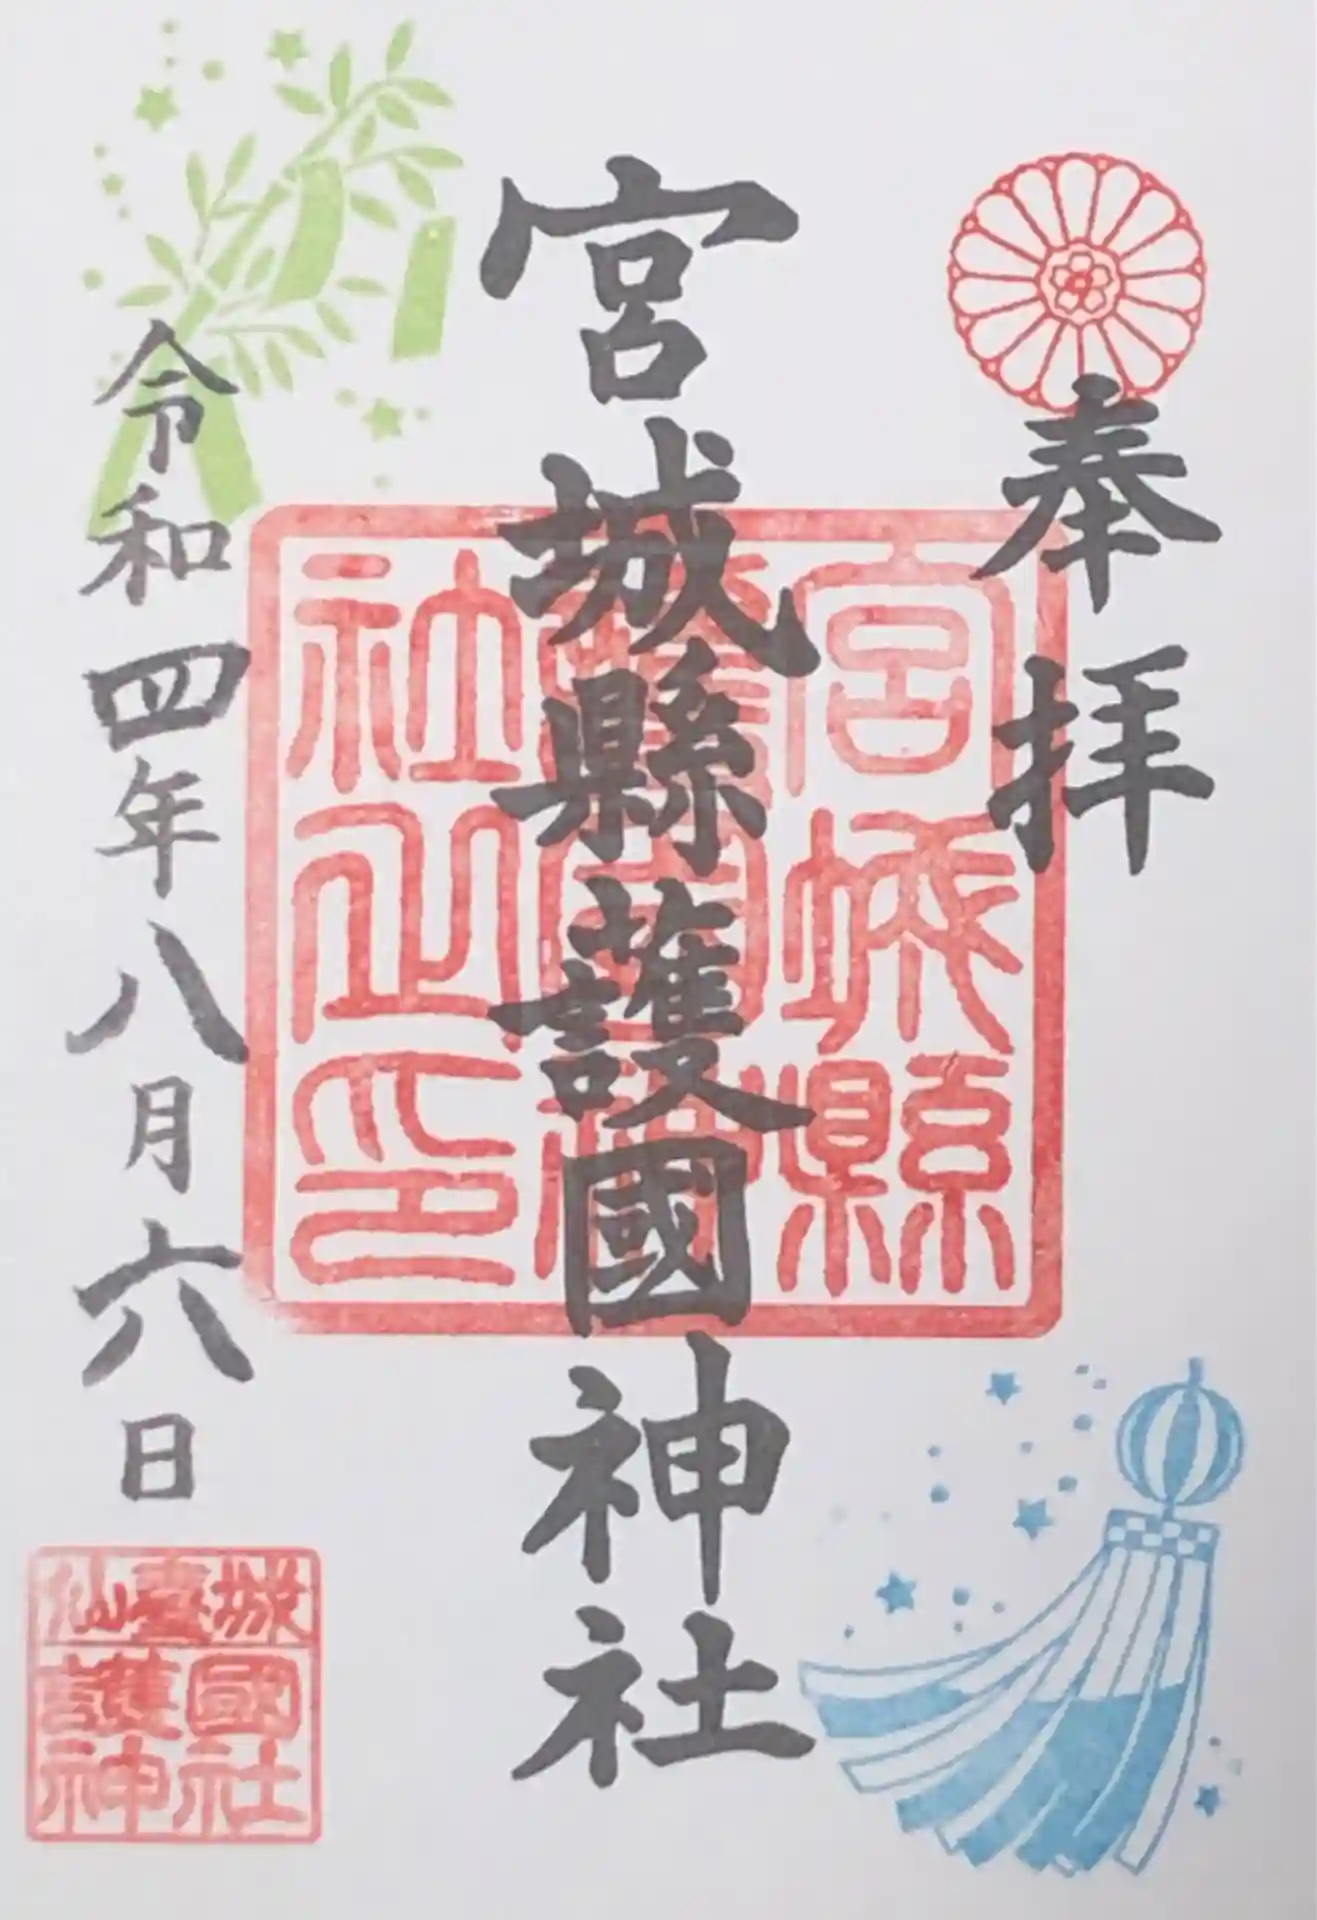 奉拝
宮城縣護國神社
令和四年八月六日
宮城縣
護國神
社之印
仙臺城
護國
神社